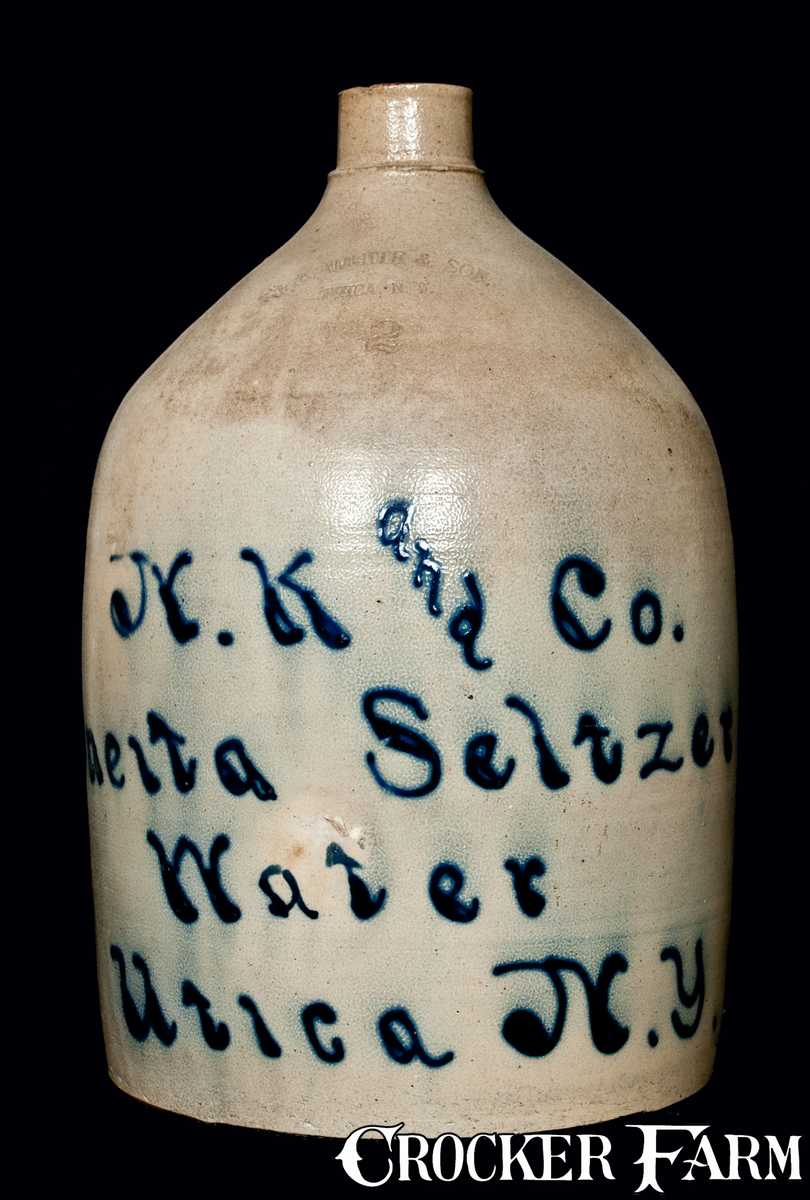 & SON.
UTICA, N.Y.
2
N.K and Co.
aeita Seltzer
Water
Utica N.Y.
CROCKER FARM